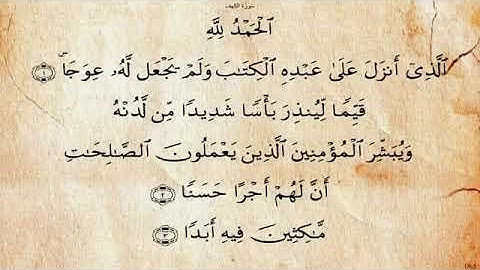 سورة الكهف
ٱلْحَمْدُ لِلَّهِ
ٱلَّذِىٓ أَنزَلَ عَلَىٰ عَبْدِهِ ٱلْكِتَـٰبَ وَلَمْ يَجْعَل لَّهُۥ عِوَجَاۜ ١
قَيِّمًا لِّيُنذِرَ بَأْسًا شَدِيدًا مِّن لَّدُنْهُ
وَيُبَشِّرَ ٱلْمُؤْمِنِينَ ٱلَّذِينَ يَعْمَلُونَ ٱلصَّـٰلِحَـٰتِ
أَنَّ لَهُمْ أَجْرًا حَسَنًا ٢
مَّـٰكِثِينَ فِيهِ أَبَدًا ٣